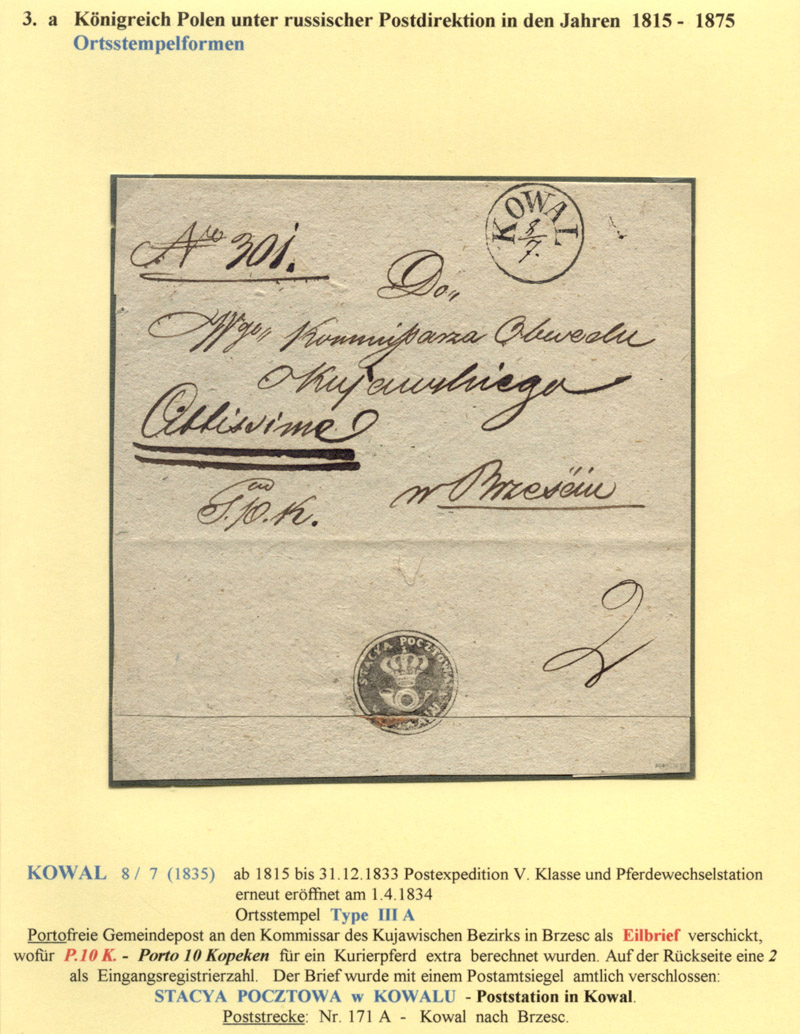 3. a Königreich Polen unter russischer Postdirektion in den Jahren 1815 - 1875
Ortsstempelformen
KOWAL
8/7.
No 301.
Do
Wgo Kommißarza Obwodu
Kujawskiego
Cittissime
w Brześciu
P.10.K.
2
STACYA POCZTOWA
KOWAL 8 / 7 (1835) ab 1815 bis 31.12.1833 Postexpedition V. Klasse und Pferdewechselstation
erneut eröffnet am 1.4.1834
Ortsstempel Type III A
Portofreie Gemeindepost an den Kommissar des Kujawischen Bezirks in Brzesc als Eilbrief verschickt,
wofür P.10 K. - Porto 10 Kopeken für ein Kurierpferd extra berechnet wurden. Auf der Rückseite eine 2
als Eingangsregistrierzahl. Der Brief wurde mit einem Postamtsiegel amtlich verschlossen:
STACYA POCZTOWA w KOWALU - Poststation in Kowal.
Poststrecke: Nr. 171 A - Kowal nach Brzesc.